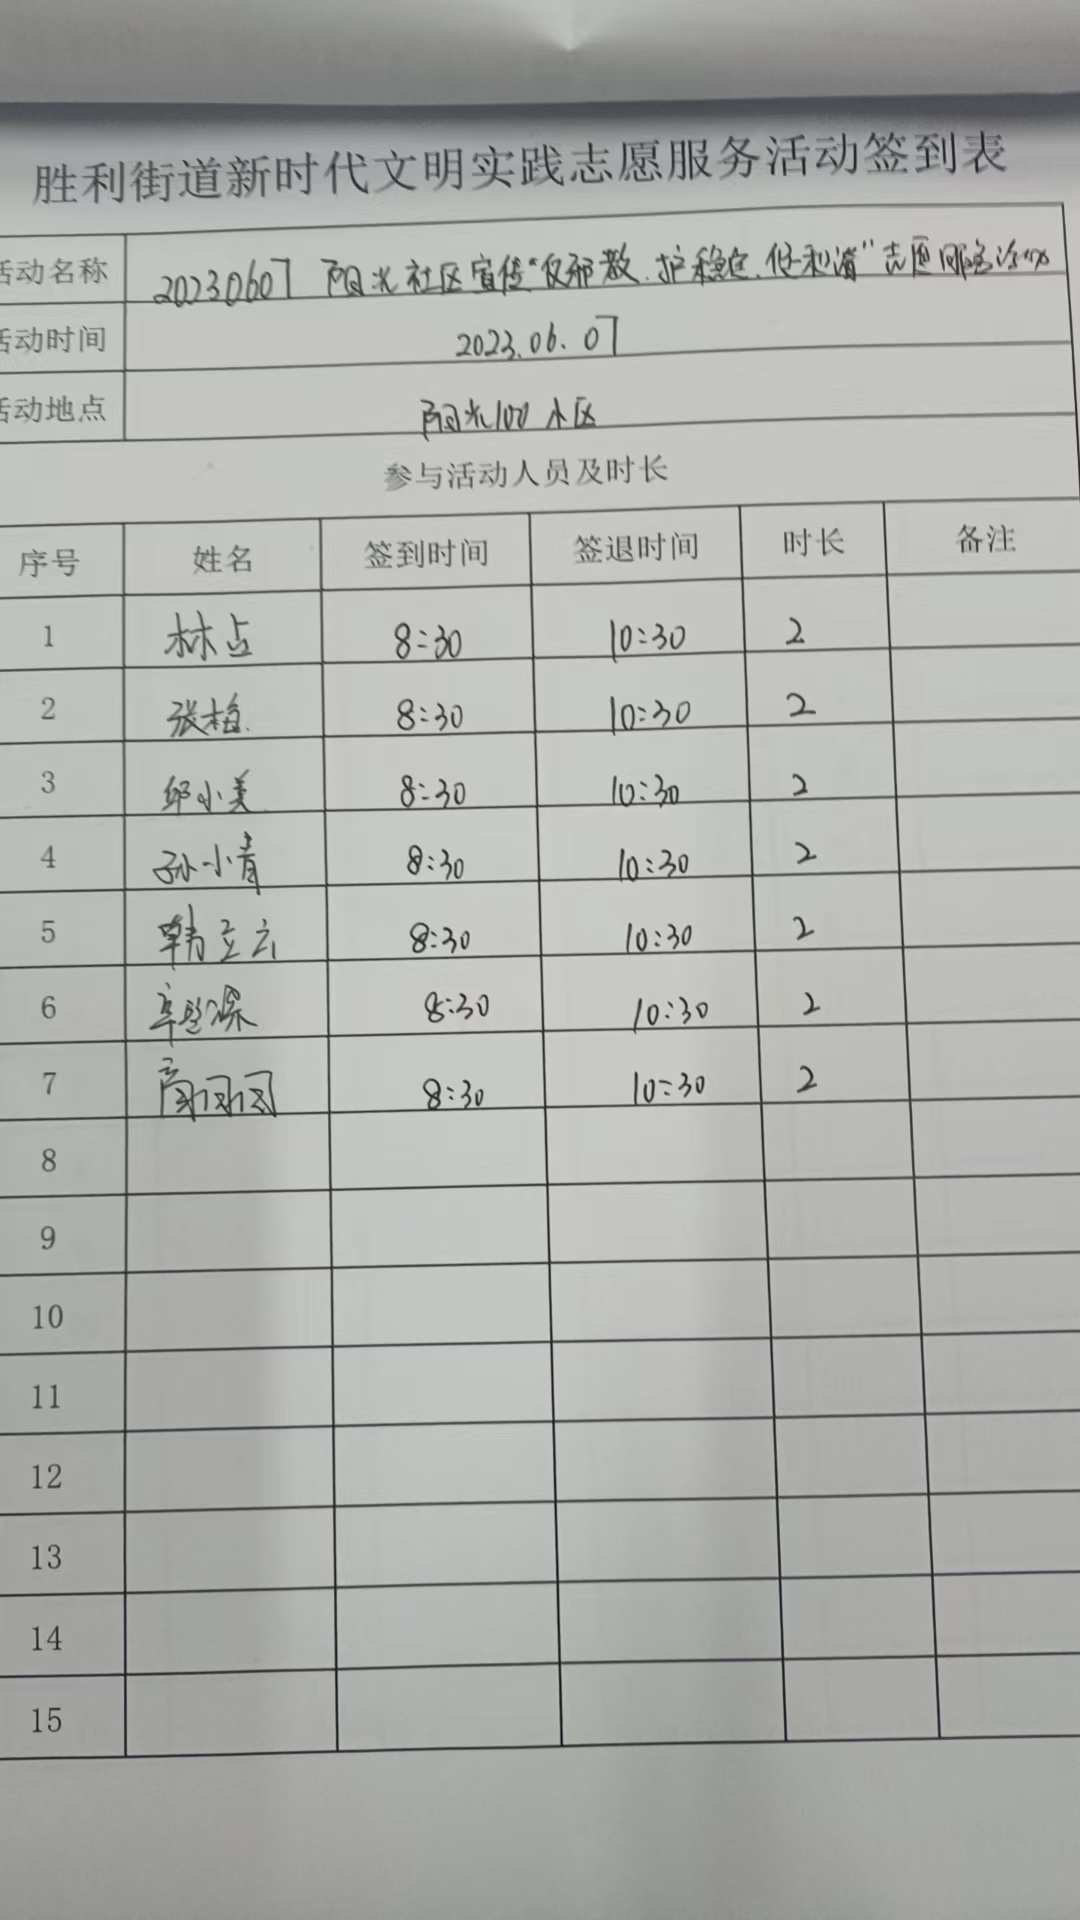 胜利街道新时代文明实践志愿服务活动签到表
活动名称 20230607 阳光社区宣传“反邪教.护稳定.促和谐”志愿服务活动
活动时间 2023.06.07
活动地点 阳光100小区
参与活动人员及时长
序号 姓名 签到时间 签退时间 时长 备注
1 林占 8:30 10:30 2
2 张梅 8:30 10:30 2
3 邱小美 8:30 10:30 2
4 孙小青 8:30 10:30 2
5 韩立云 8:30 10:30 2
6 8:30 10:30 2
7 8:30 10:30 2
8
9
10
11
12
13
14
15